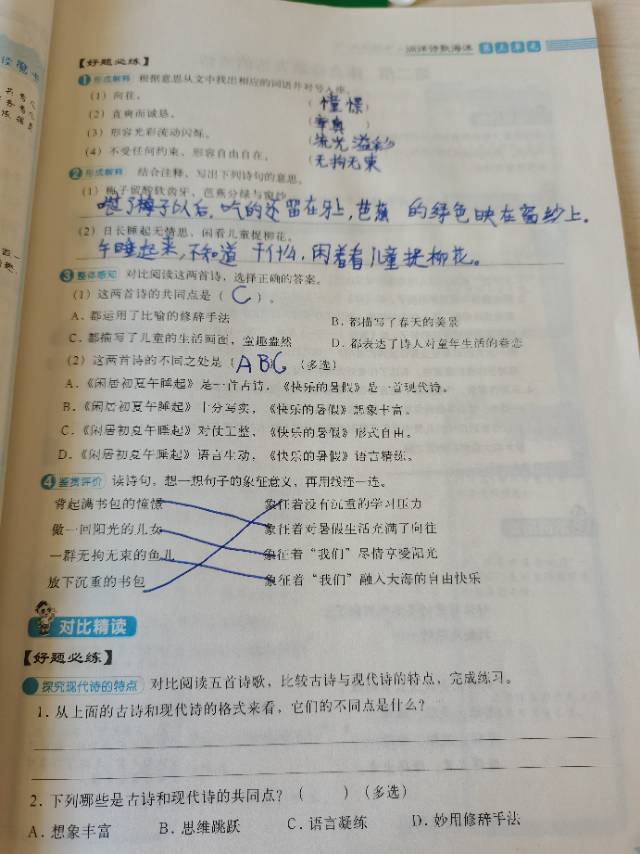 【好题必练】
1 形成解释 根据意思从文中找出相应的词语并对号入座。
(1) 向往。 (憧憬)
(2) 直爽而诚恳。
(3) 形容光彩流动闪烁。 (流光溢彩)
(4) 不受任何约束，形容自由自在。 (无拘无束
2 形成解释 结合注释，写出下列诗句的意思。
(1) 梅子留酸软齿牙，芭蕉分绿与窗纱。
梅子以后，吃的还留在牙上，芭蕉 的绿色映在窗纱上。
(2) 日长睡起无情思，闲看儿童捉柳花。
午睡起来，不知道 干什么，闲着看儿童捉柳花。
3 整体感知 对比阅读这两首诗，选择正确的答案。
(1) 这两首诗的共同点是（ C ）。
A. 都运用了比喻的修辞手法 B. 都描写了春天的美景
C. 都描写了儿童的生活画面，童趣盎然 D. 都表达了诗人对童年生活的眷恋
(2) 这两首诗的不同之处是（ABC （多选）
A.《闲居初夏午睡起》是一首古诗，《快乐的暑假》是一首现代诗。
B.《闲居初夏午睡起》十分写实，《快乐的暑假》想象丰富。
C.《闲居初夏午睡起》对仗工整，《快乐的暑假》形式自由。
D.《闲居初夏午睡起》语言生动，《快乐的暑假》语言精练。
4 鉴赏评价 读诗句，想一想句子的象征意义，再用线连一连。
背起满书包的憧憬 象征着没有沉重的学习压力
做一回阳光的儿女 象征着对暑假生活充满了向往
一群无拘无束的鱼儿 象征着“我们”尽情享受阳光
放下沉重的书包 象征着“我们”融入大海的自由快乐
对比精读
【好题必练】
探究现代诗的特点 对比阅读五首诗歌，比较古诗与现代诗的特点，完成练习。
1. 从上面的古诗和现代诗的格式来看，它们的不同点是什么？
2. 下列哪些是古诗和现代诗的共同点？（ ）（多选）
A. 想象丰富 B. 思维跳跃 C. 语言凝练 D. 妙用修辞手法